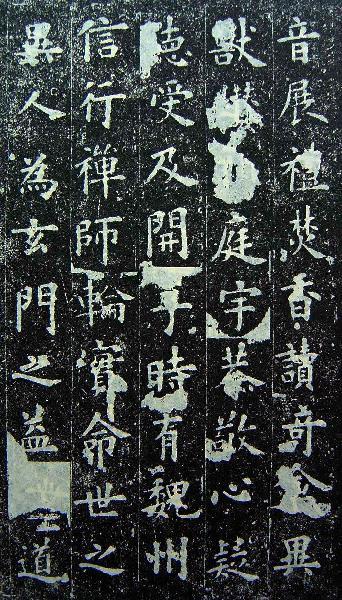 音展禮焚香讀奇禽異
獸攢庭宇恭敬心疑
聽受及開于時有魏州
信行禪師輪寶命世之
異人為玄門之益道